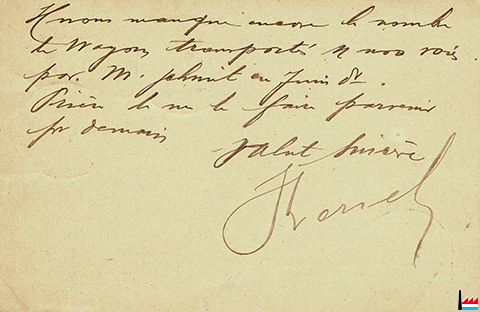 Il nous manque encore le nombre
de Wagons transportés s/ nos voies
par M. Schmit en Juin dr.
Prière de me le faire parvenir
pr demain
Salut sincère